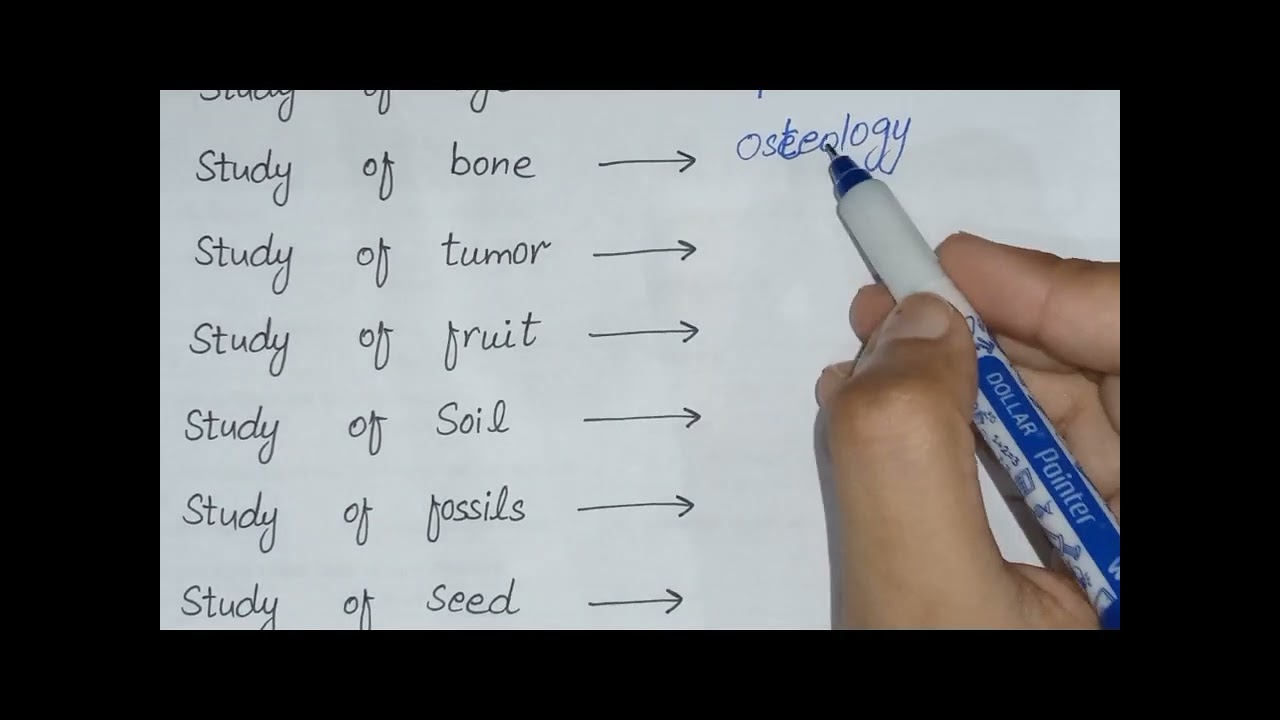 Study of
Osteology
Study of bone →
Study of tumor →
Study of fruit →
Study of Soil →
Study of fossils →
Study of Seed →
DOLLAR Pointer